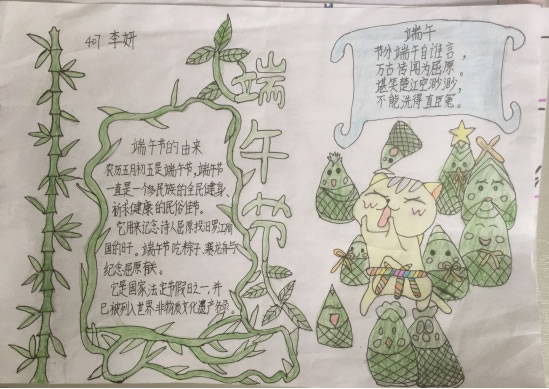 407 李妍
端午节
端午
节分端午自谁言,
万古传闻为屈原。
堪笑楚江空渺渺,
不能洗得直臣冤。
端午节的由来
农历五月初五是端午节,端午节
一直是一个多民族的全民健身、
祈求健康的民俗佳节。
它用来记念诗人屈原投汨罗江殉
国的日子。端午节吃粽子、赛龙舟与
纪念屈原有关。
它是国家法定节假日之一,并
已被列入世界非物质文化遗产名录。